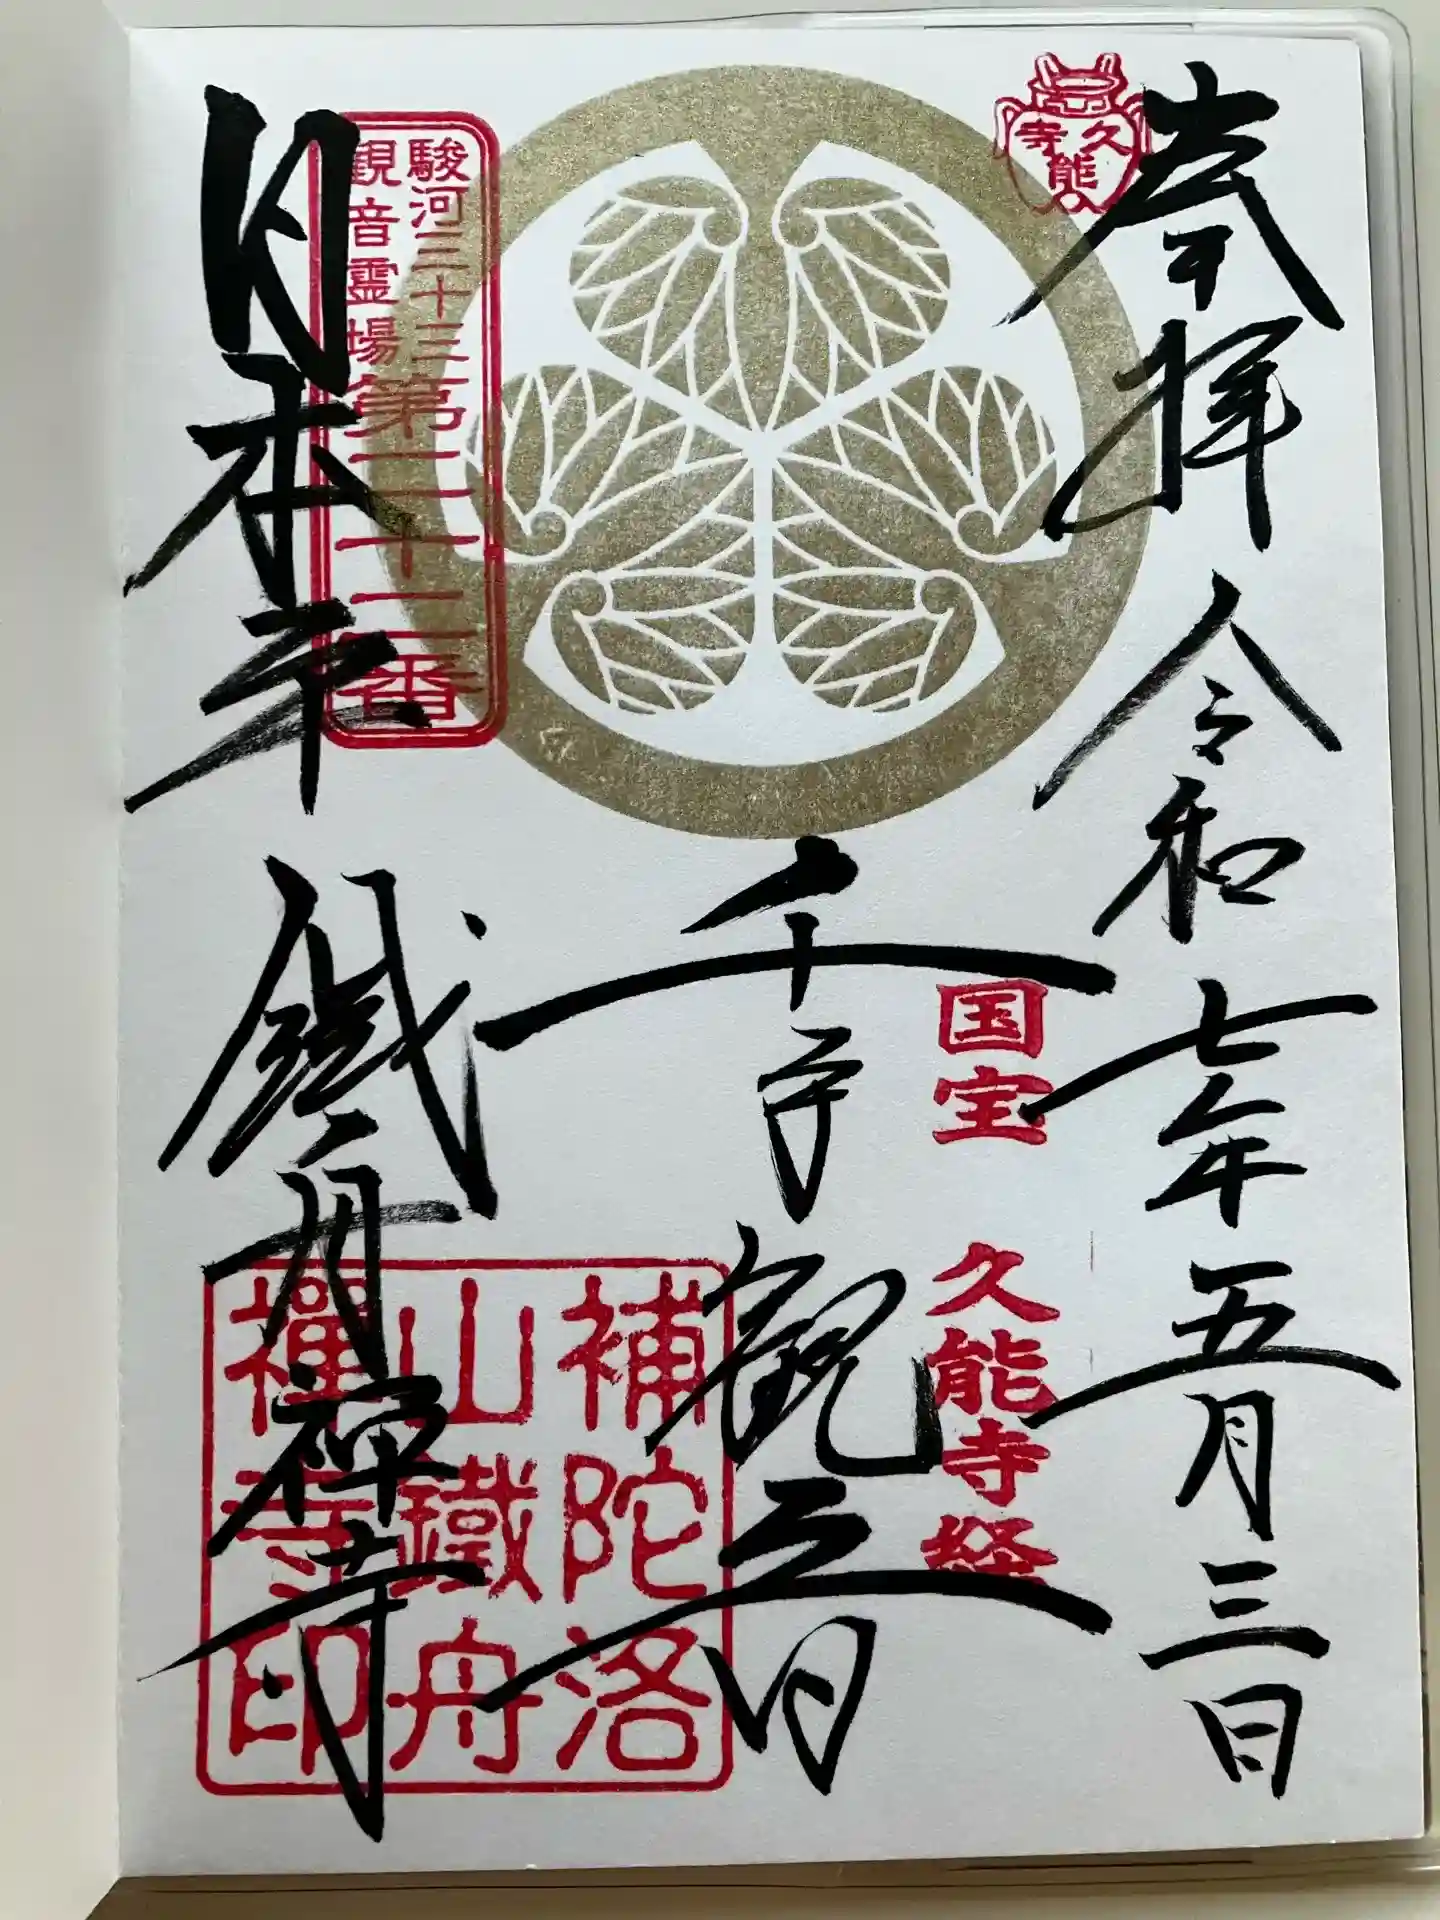 奉拝
令和七年五月三日
久能寺
国宝 久能寺経
千手観音
駿河三十三
観音霊場第二十二番
日本平
鐵舟禅寺
補陀洛
山鐵舟
禪寺印